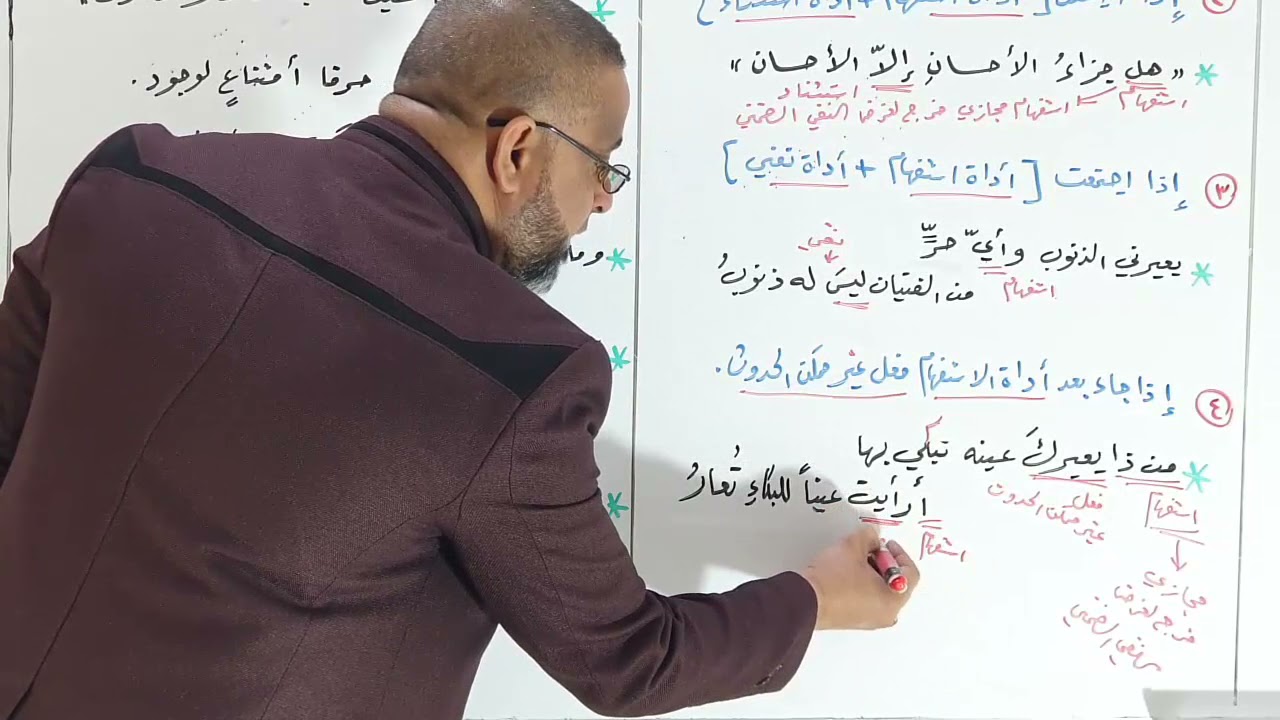 « هل جزاءُ الأحسانِ إلاّ الأحسان »
استفهام
استثناء
استفهام مجازي خرج لغرض النفي الضمني
٣ إذا اجتمعت [ أداة استفهام + أداة نفي ]
يعيرني الذنوب وأيّ حرٍّ
نفي
من الفتيان ليسَ له ذنوبُ
استفهام
٤ إذا جاء بعد أداة الاستفهام فعل غير ممكن الحدوث .
من ذا يعيركَ عينه تبكي بها
استفهام
فعل غير ممكن الحدوث
أرأيت عيناً للبكاءِ تُعارُ
استفهام
مجازي
خرج لغرض
النفي الضمني
حرفا أمتناعٍ لوجود .